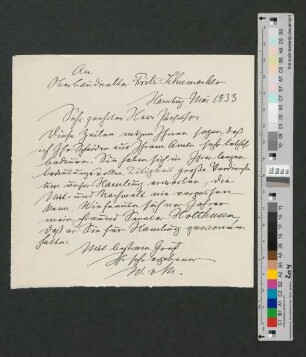 An
Oberbaudirektor Fritz Schumacher
Hamburg Mai 1933
Sehr geehrter Herr Professor
Diese Zeilen mögen Ihnen sagen, daß
ich Ihr Scheiden aus Ihrem Amte sehr lebhaft
bedaure. Sie haben sich in Ihrer langen
bedeutungsvollen Tätigkeit große Verdienste
um unser Hamburg erworben, die
Mit- und Nachwelt nie vergessen
kann. Wie freute sich vor Jahren
mein Freund Senator Holthusen,
daß er Sie für Hamburg gewonnen
hatte.
Mit bestem Gruß
Ihr sehr ergebener